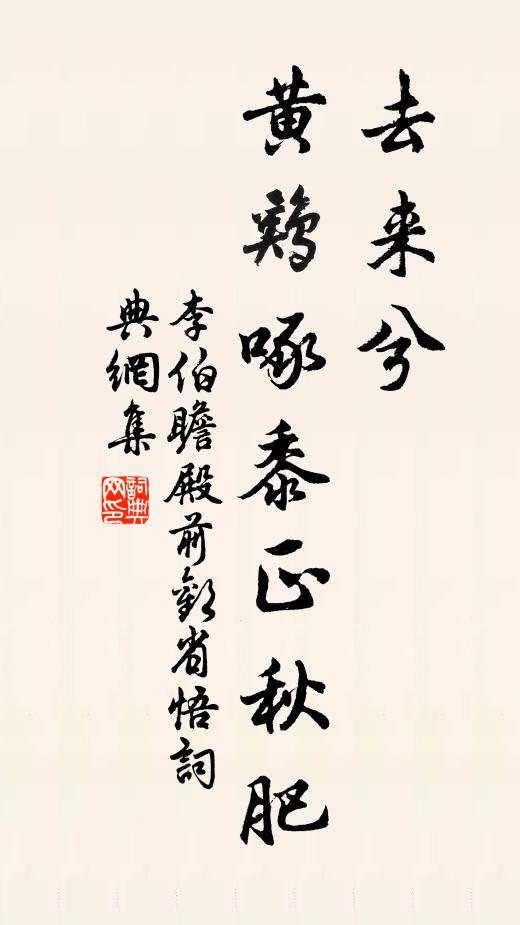 去来兮
黄鷄啄黍正秋肥
李伯瞻殿前歡省悟詞
典網集
詞典網印